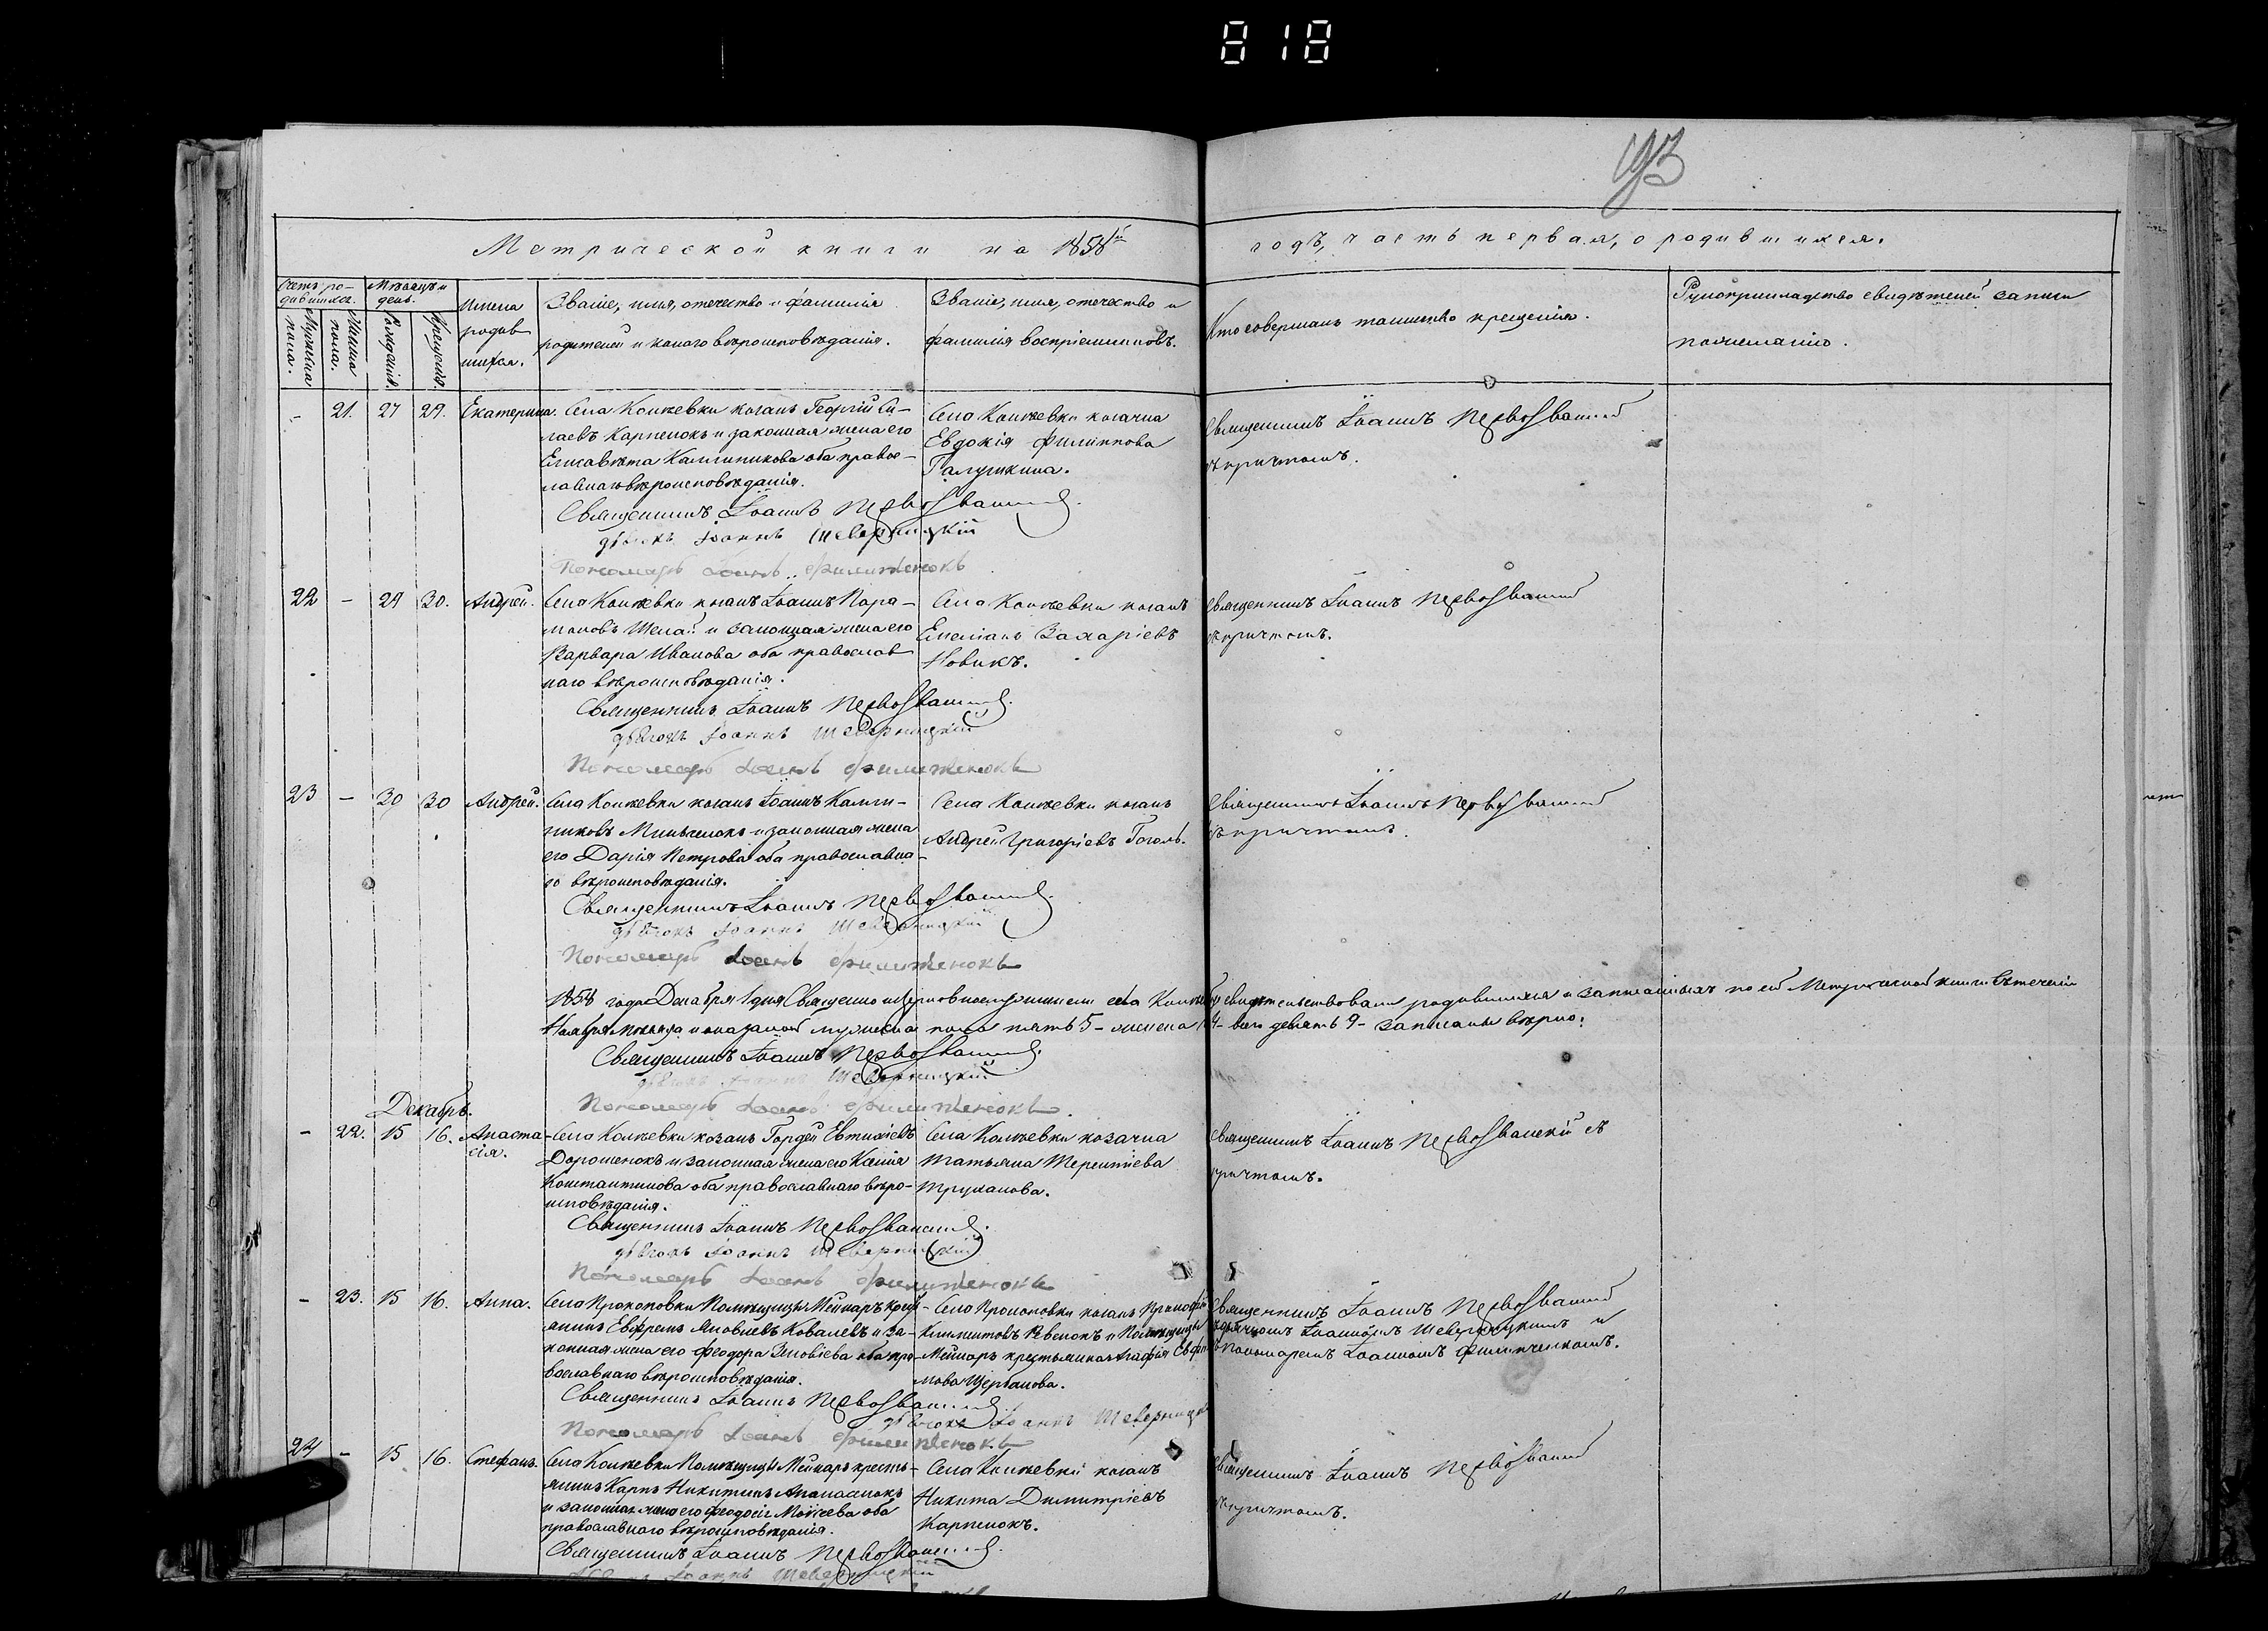 818
193
Метрической книги на 1858й годъ, часть первая, о родившихся.
Счетъ родившихся.
Мѣсяцъ и день.
Имена родившихся.
Званіе, имя, отечество и фамилія родителей и какого вѣроисповѣданія.
Званіе, имя, отечество и фамилія воспріемниковъ.
Кто совершалъ таинство крещенія.
Рукоприкладство свидѣтелей записи по желанію.
Мужеска пола.
Женска пола.
Рожденія.
Крещенія.
- 21. 27 29. Екатерина.
Села Коптевки козакъ Георгій
Карпенокъ и законная жена его
Елисавета Каллиникова оба право-
славнаго вѣроисповѣданія.
Села Коптевки козачка
Евдокія Филиппова
Галушкина.
Священникъ Іоаннъ Первозванскій
съ причтомъ.
Священникъ Іоаннъ Первозванскій
дьячокъ Іоаннъ Шеверницкій
Пономарь Іоаннъ Филипченокъ
22 - 29 30. Андрей.
Села Коптевки козакъ Іоаннъ Пара-
моновъ и законная жена его
Варвара Иванова оба православ
наго вѣроисповѣданія.
Села Коптевки козакъ
Емеліанъ Захаріевъ
Новикъ.
Священникъ Іоаннъ Первозванскій
съ причтомъ.
Священникъ Іоаннъ Первозванскій
дьячокъ Іоаннъ Шеверницкій
Пономарь Іоаннъ Филипченокъ
23 - 30 30 Андрей.
Села Коптевки козакъ Іоаннъ Калли-
никовъ и законная жена
его Дарія Петрова оба православна-
го вѣроисповѣданія.
Села Коптевки козакъ
Андрей Григоріевъ Гоголь.
Священникъ Іоаннъ Первозванскій
съ причтомъ.
Священникъ Іоаннъ Первозванскій
дьячокъ Іоаннъ Шеверницкій
Пономарь Іоаннъ Филипченокъ
1858 года Декабря 1 дня Священно и церковнослужители села свидѣтельствовали родившихся и записанныхъ по сей Метрической книги въ теченіи
Ноября мѣсяца и оказалось мужеска пола пять 5 - женска 4 - всего девять 9 - записаны вѣрно.
Священникъ Іоаннъ Первозванскій
дьячокъ Іоаннъ Шеверницкій
Пономарь Іоаннъ Филипченокъ.
Декабрь.
- 22. 15 16. Анаста-
сія.
Села Коптевки козакъ Гордей Евтихіевъ
Дорошенокъ и законная жена его Ксенія
Константинова оба православнаго вѣро-
исповѣданія.
Села Коптевки козачка
Татьяна Терентіева
Труханова.
Священникъ Іоаннъ Первозванскій съ
причтомъ.
Священникъ Іоаннъ Первозванскій
дьячокъ Іоаннъ Шеверницкій
Пономарь Іоаннъ Филипченокъ
- 23. 15 16. Анна.
Села Прокоповки Помѣщицы Мейнаръ кресть-
янинъ Ефремъ Яковлевъ Ковалевъ и за-
конная жена его Феодора Зиновіева оба пра-
вославнаго вѣроисповѣданія.
Села Прокоповки козакъ Прокофій
Климентовъ Ревенокъ и Помѣщицы
Мейнаръ крестьянка Агафія
Щербакова.
Священникъ Іоаннъ Первозванскій
съ дьячкомъ Іоанномъ Шеверницкимъ и
Пономаремъ Іоанномъ Филипченкомъ.
Священникъ Іоаннъ Первозванскій
дьячокъ Іоаннъ Шеверницкій
Пономарь Іоаннъ Филипченокъ
24 - 15 16. Стефанъ.
Села Коптевки Помѣщицы Мейнаръ кресть-
янинъ Карпъ Никитинъ
и законная жена его Феодосія Моисеева оба
православнаго вѣроисповѣданія.
Села Коптевки козакъ
Никита Димитріевъ
Карпенокъ.
Священникъ Іоаннъ Первозванскій
съ причтомъ.
Священникъ Іоаннъ Первозванскій
Іоаннъ Шеверницкій